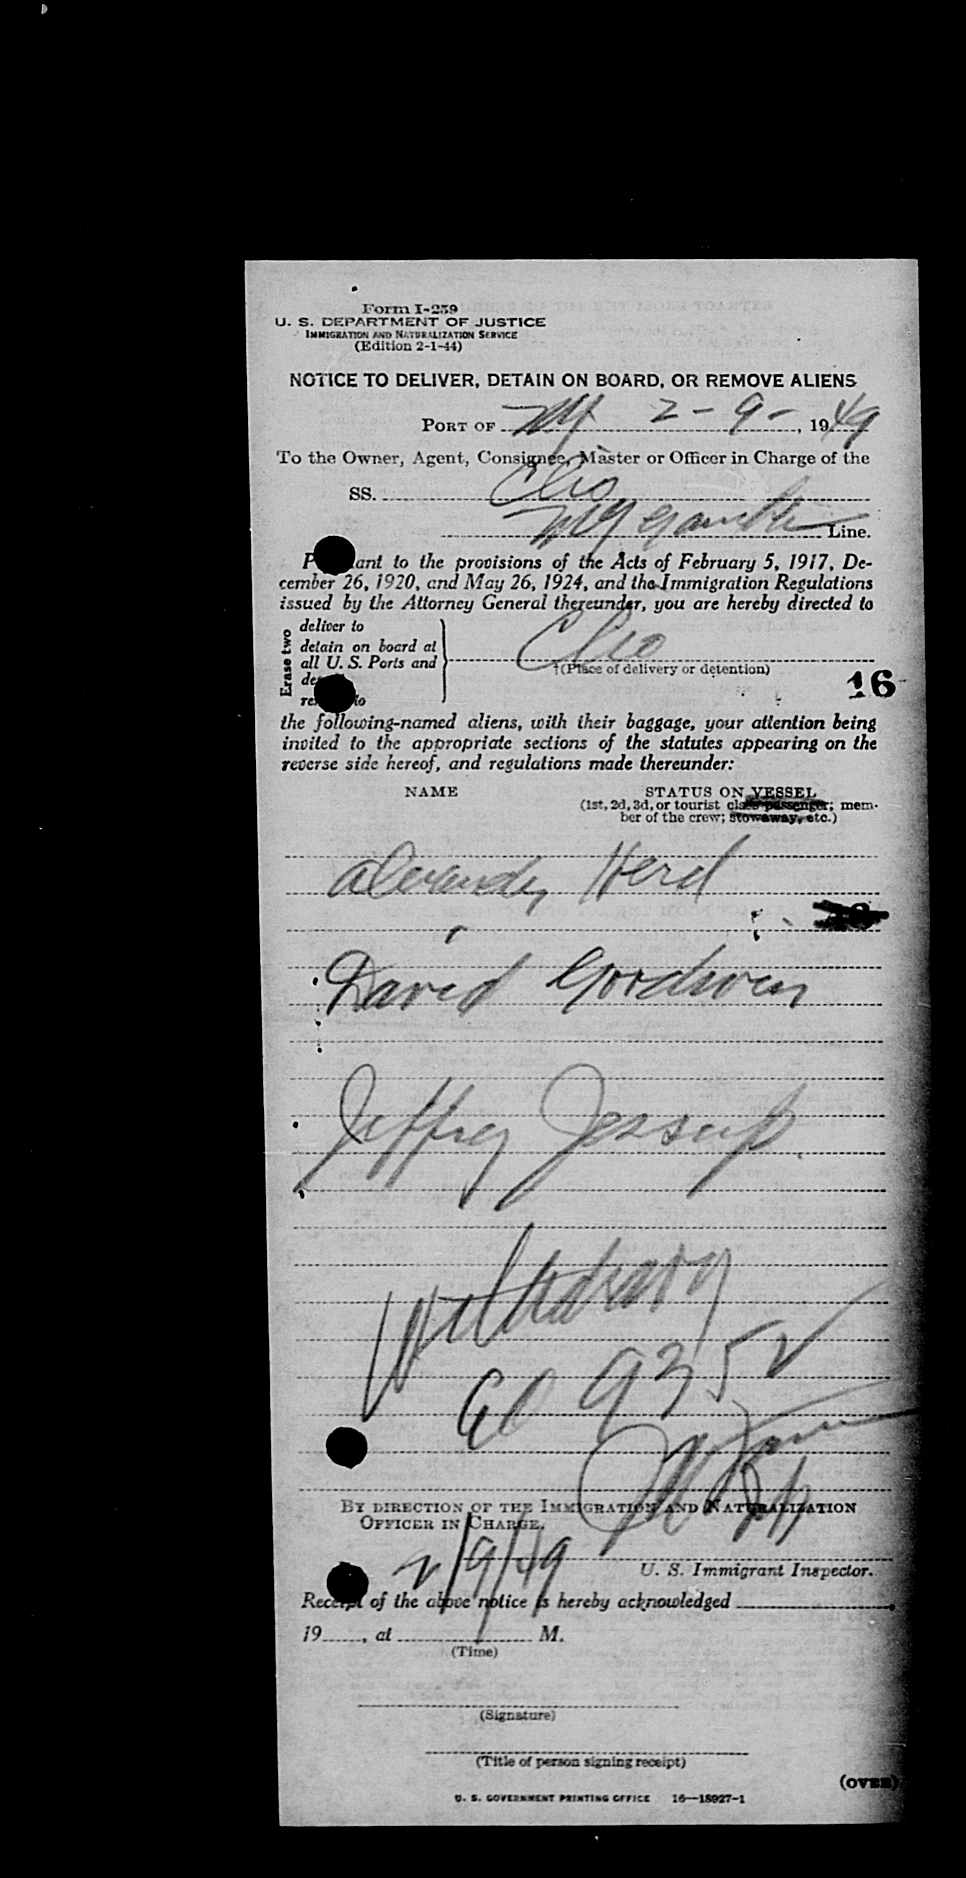 Form I-259
U. S. DEPARTMENT OF JUSTICE
IMMIGRATION AND NATURALIZATION SERVICE
(Edition 2-1-44)
NOTICE TO DELIVER, DETAIN ON BOARD, OR REMOVE ALIENS
PORT OF NY 2-9-, 1949
To the Owner, Agent, Consignee, Master or Officer in Charge of the
SS. Clio
Line.
P ant to the provisions of the Acts of February 5, 1917, De-
cember 26, 1920, and May 26, 1924, and the Immigration Regulations
issued by the Attorney General thereunder, you are hereby directed to
Erase two
deliver to
detain on board at
all U. S. Ports and
de
re to
Clio
†(Place of delivery or detention)
16
the following-named aliens, with their baggage, your attention being
invited to the appropriate sections of the statutes appearing on the
reverse side hereof, and regulations made thereunder:
NAME STATUS ON VESSEL
(1st, 2d, 3d, or tourist class passenger; mem-
ber of the crew; stowaway, etc.)
Alexander Herd
David Goodwin
Jeffrey Jessup.
9352
BY DIRECTION OF THE IMMIGRATION AND NATURALIZATION
OFFICER IN CHARGE.
2/9/49
U. S. Immigrant Inspector.
Receipt of the above notice is hereby acknowledged
19 , at M.
(Time)
(Signature)
(Title of person signing receipt)
(OVER)
U. S. GOVERNMENT PRINTING OFFICE 16—18927-1